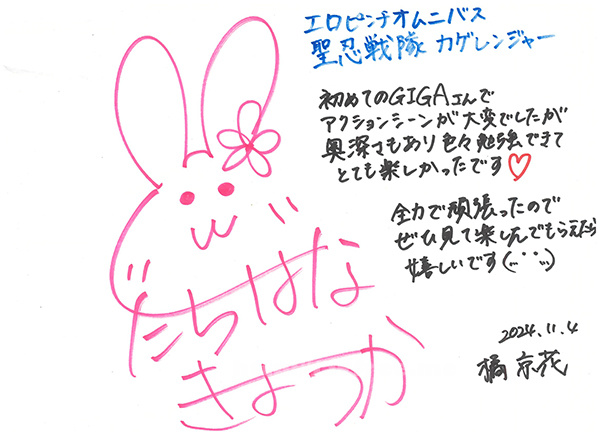 エロピンチオムニバス
聖忍戦隊 カゲレンジャー
初めてのGIGAさんで
アクションシーンが大変でしたが
奥深さもあり色々勉強できて
とても楽しかったです♡
全力で頑張ったので
ぜひ見て楽しんでもらえたら
嬉しいです(⌯¨̈⌯)
2024.11.4
橘 京花
たちはな
きょうか